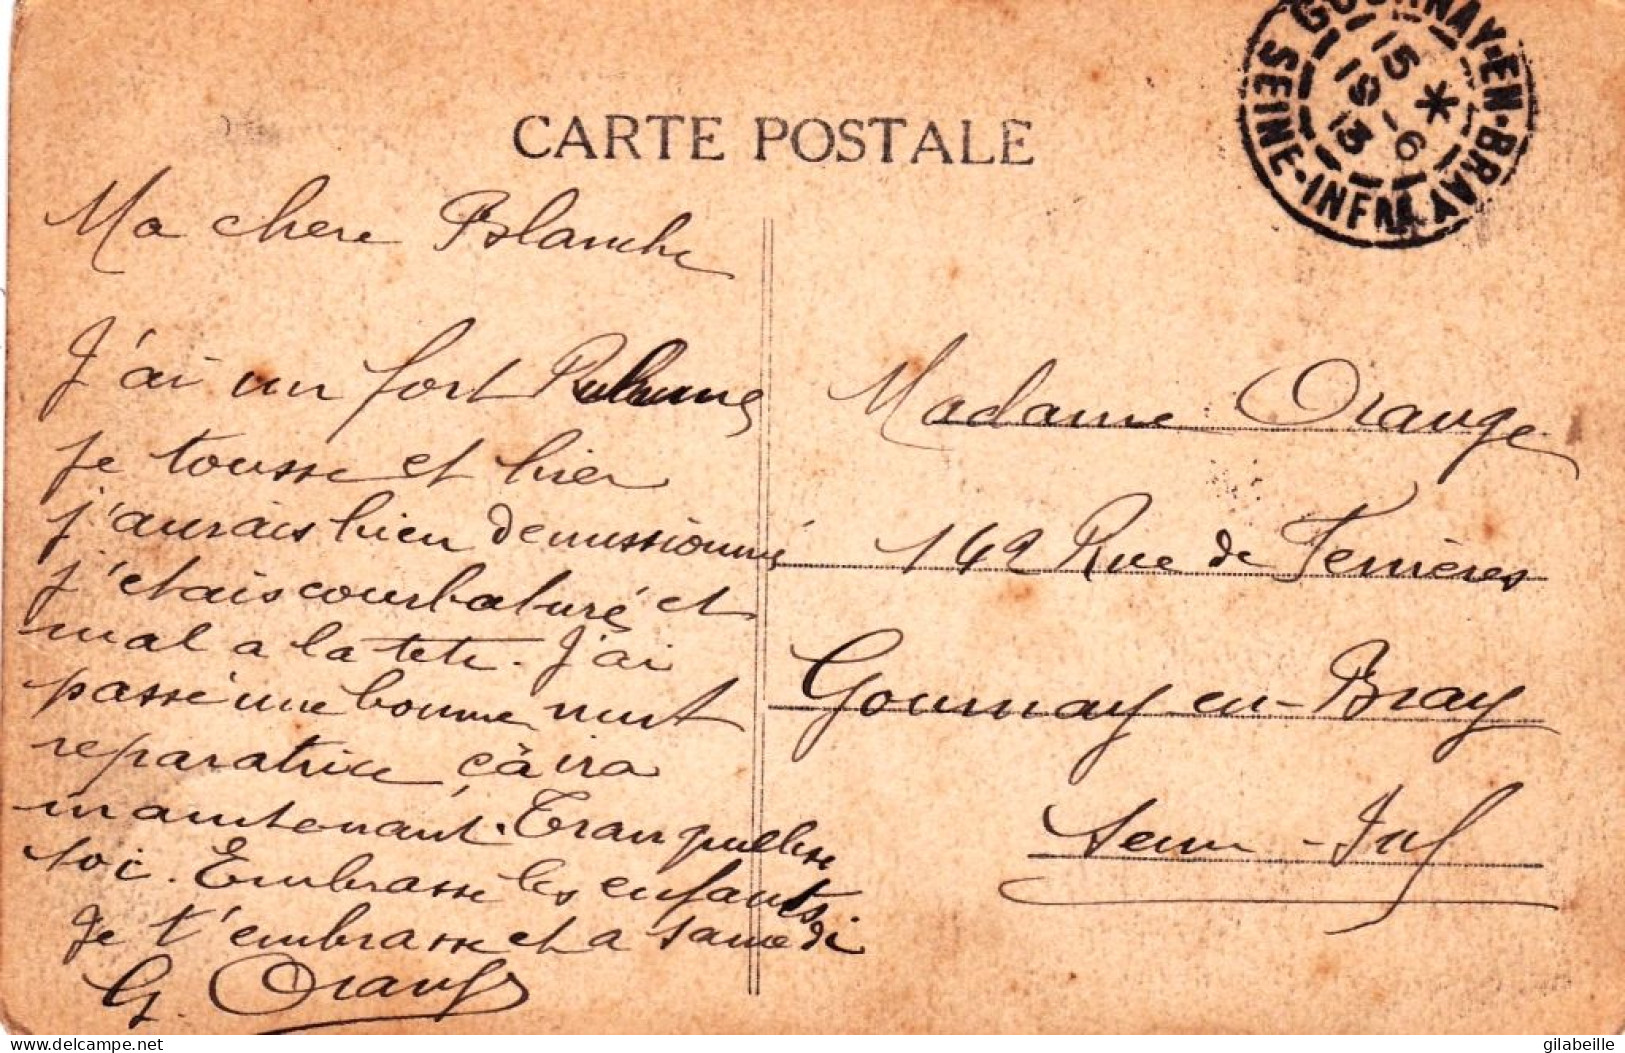 CARTE POSTALE
GOURNAY-EN-BRAY
SEINE-INFRE
15 *
19 -6
13
Ma chere Blanche
J'ai un fort Rhume
je tousse et hier
j'aurais bien demissionné
j'etais courbaturé et
mal a la tete. J'ai
passé une bonne nuit
reparatrice, çà ira
maintenant. Tranquillise
toi. Embrasse les enfants
Je t'embrasse et a samedi
G. Orange
Madame Orange
142 Rue de Ferrières
Gournay en-Bray
Seine-Inf
delcampe.net
gilabeille